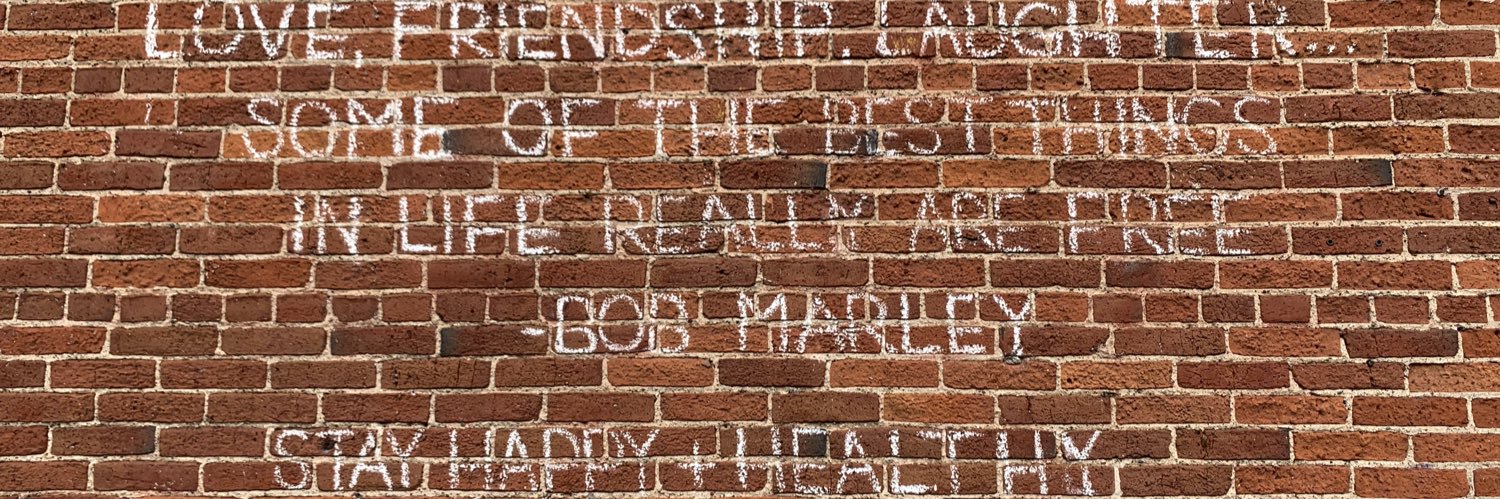 LOVE, FRIENDSHIP, LAUGHTER...
SOME OF THE BEST THINGS
IN LIFE REALLY ARE FREE
-BOB MARLEY
STAY HAPPY + HEALTHY